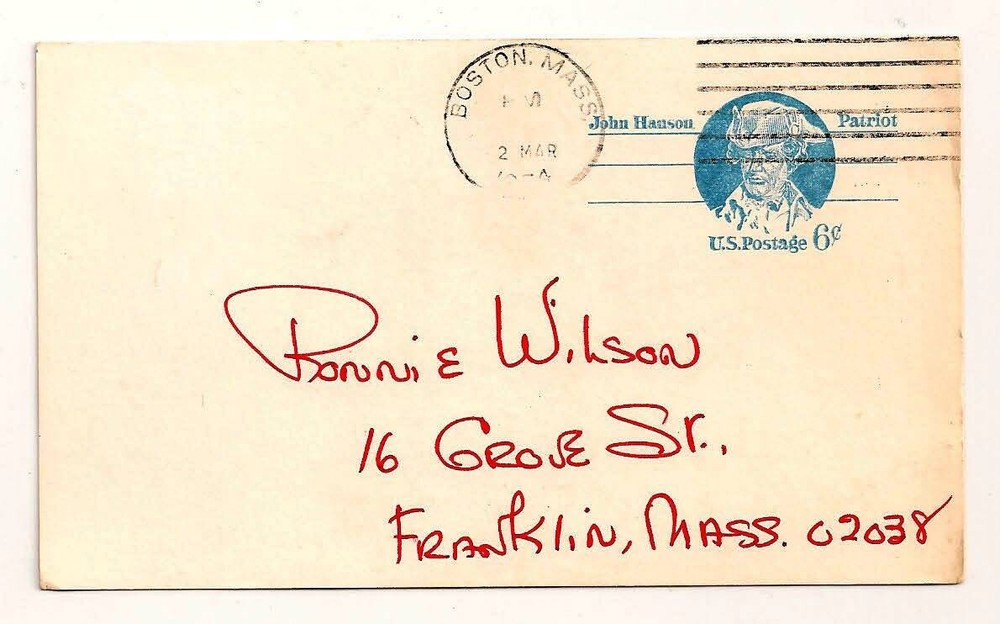 BOSTON, MASS.
PM
2 MAR
John Hanson Patriot
U.S. Postage 6¢
Ronnie Wilson
16 Grove St.,
Franklin, Mass. 02038